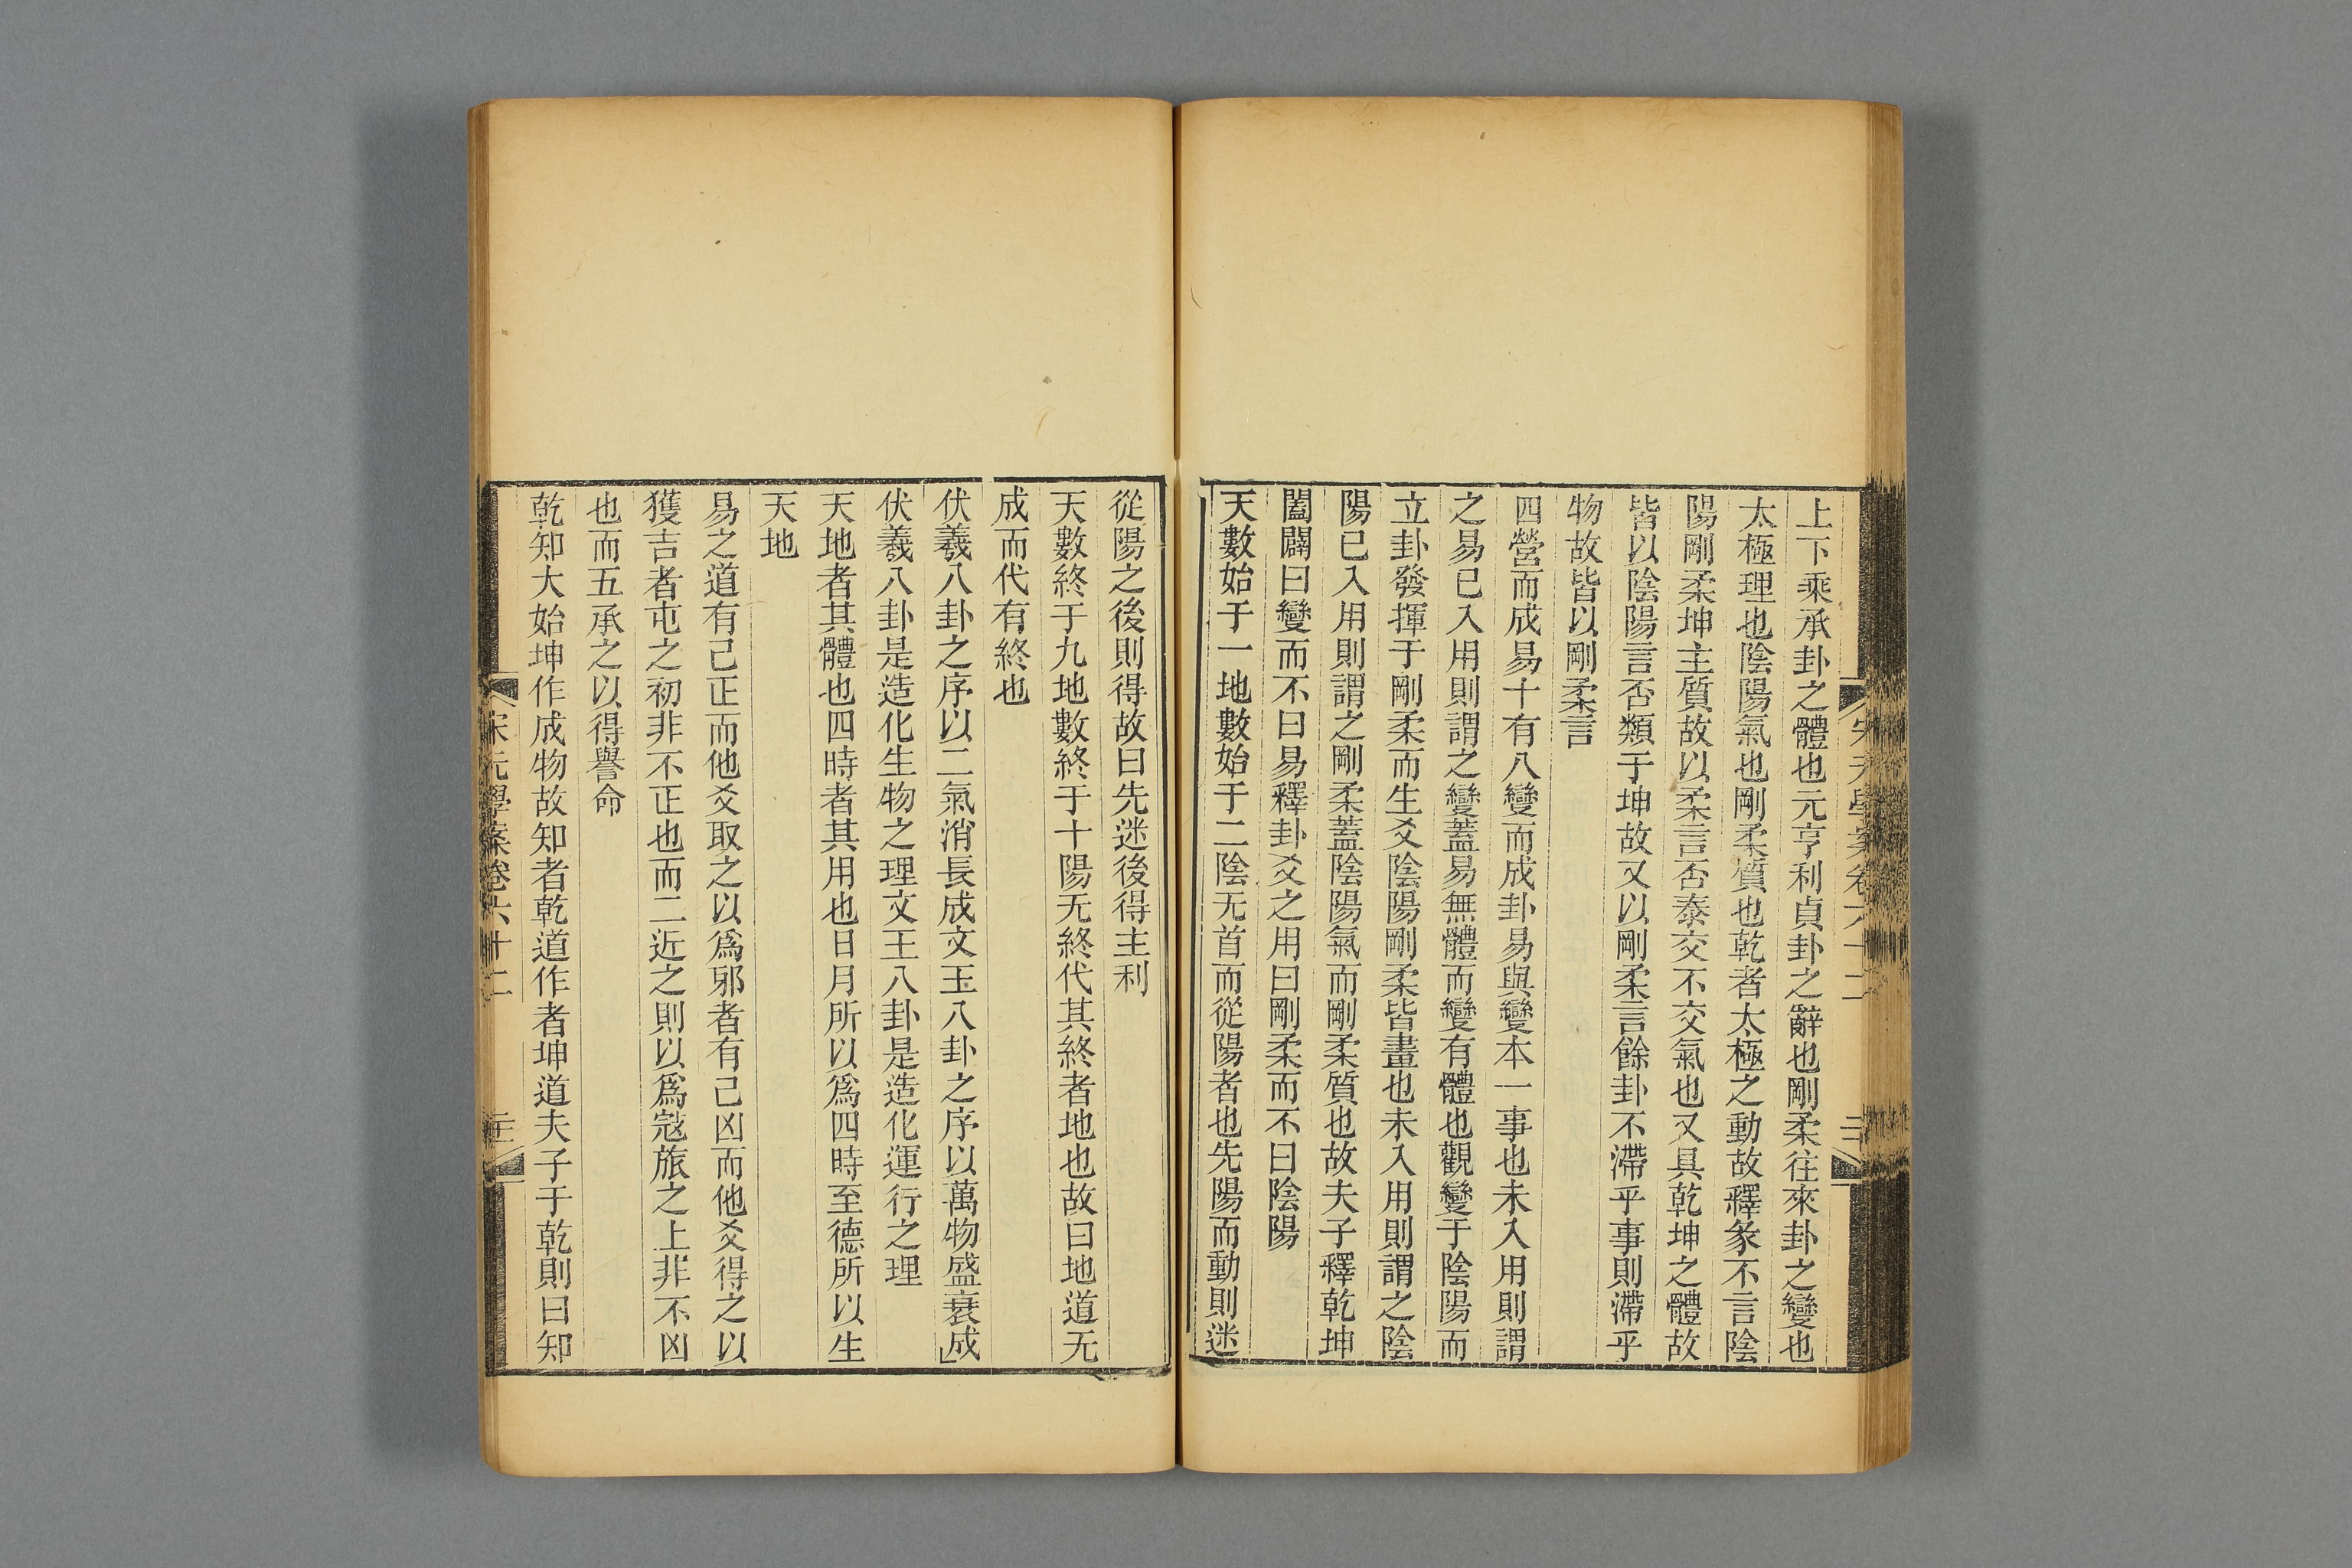 上下乘承卦之體也元亨利貞卦之辭也剛柔往來卦之變也
太極理也陰陽氣也剛柔質也乾者太極之動故釋彖不言陰
陽剛柔坤主質故以柔言否泰交不交氣也又具乾坤之體故
皆以陰陽言否類于坤故又以剛柔言餘卦不滯乎事則滯乎
物故皆以剛柔言
四營而成易十有八變而成卦易與變本一事也未入用則謂
之易已入用則謂之變蓋易無體而變有體也觀變于陰陽而
立卦發揮于剛柔而生爻陰陽剛柔皆畫也未入用則謂之陰
陽已入用則謂之剛柔蓋陰陽氣而剛柔質也故夫子釋乾坤
闔闢曰變而不曰易釋卦爻之用曰剛柔而不曰陰陽
天數始于一地數始于二陰无首而從陽者也先陽而動則迷
從陽之後則得故曰先迷後得主利
天數終于九地數終于十陽无終代其終者地也故曰地道无
成而代有終也
伏羲八卦之序以二氣消長成文王八卦之序以萬物盛衰成
伏羲八卦是造化生物之理文王八卦是造化運行之理
天地者其體也四時者其用也日月所以爲四時至德所以生
天地
易之道有己正而他爻取之以爲邪者有己凶而他爻得之以
獲吉者屯之初非不正也而二近之則以爲寇旅之上非不凶
也而五承之以得譽命
乾知大始坤作成物故知者乾道作者坤道夫子于乾則曰知
宋元學案卷六十二